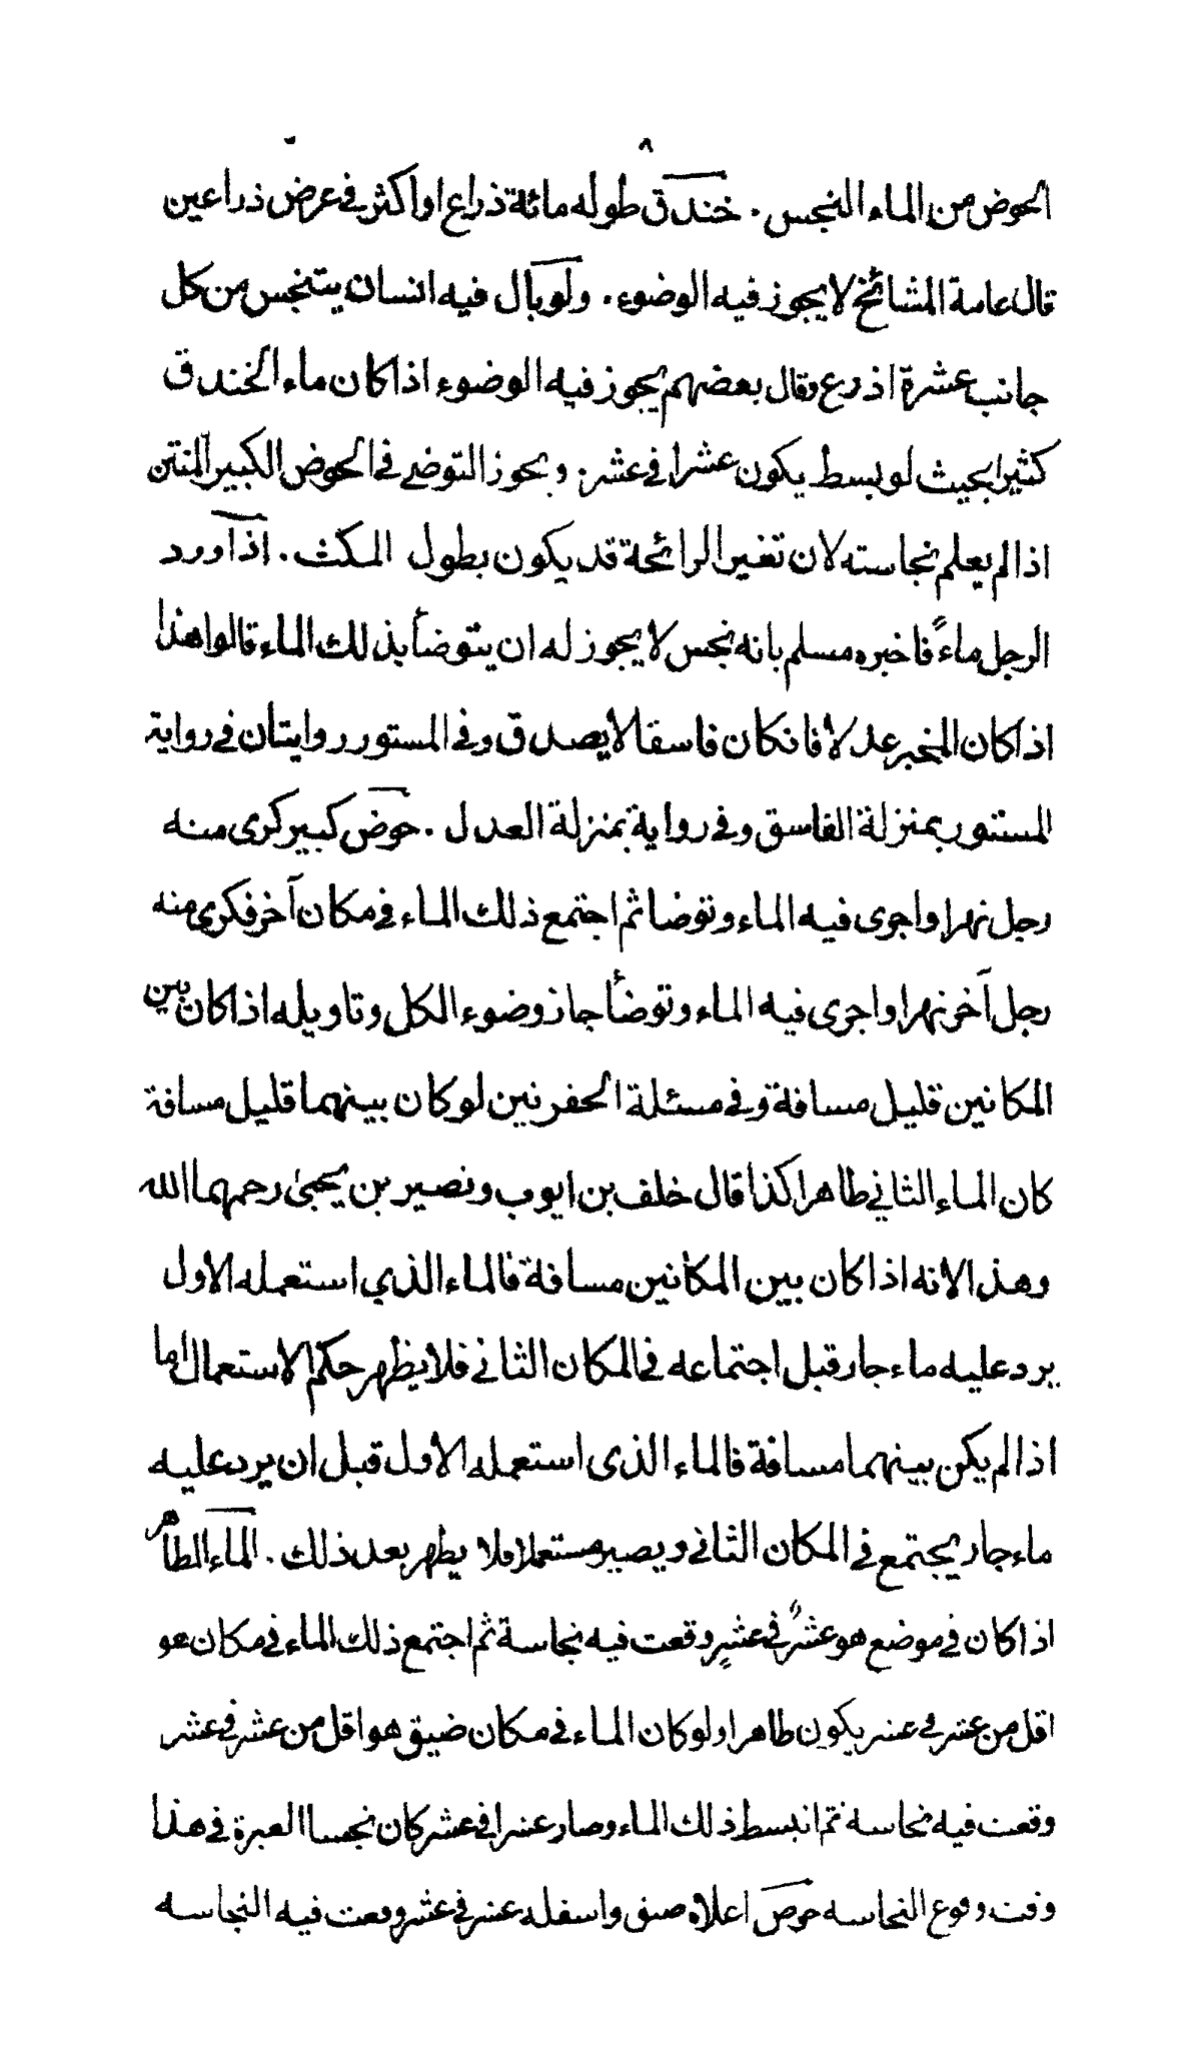 ٨
الحوض من الماء النجس . خندق طوله مائة ذراع او اكثر في عرض ذراعين
قال عامة المشائخ لا يجوز فيه الوضوء . ولو بال فيه انسان يتنجس من كل
جانب عشرة اذرع وقال بعضهم يجوز فيه الوضوء اذا كان ماء الخندق
كثيرا بحيث لو بسط يكون عشرا في عشر . ويجوز التوضي في الحوض الكبير المنتن
اذا لم يعلم نجاسته لان تغير الرائحة قد يكون بطول المكث . اذا ورد
الرجل ماءً فاخبره مسلم بانه نجس لا يجوز له ان يتوضأ بذلك الماء قالوا هذا
اذا كان المخبر عدلا فانكان فاسقا لا يصدق وفي المستور روايتان في رواية
المستور بمنزلة الفاسق وفي رواية بمنزلة العدل . حوض كبير كرى منه
رجل نهرا واجرى فيه الماء وتوضا ثم اجتمع ذلك الماء في مكان آخر فكرى منه
رجل آخر نهرا واجرى فيه الماء وتوضأ جاز وضوء الكل وتاويله اذا كان بين
المكانين قليل مسافة وفي مسئلة الحفرتين لو كان بينهما قليل مسافة
كان الماء الثاني طاهرا كذا قال خلف بن ايوب ونصير بن يحيى رحمهما الله
وهذا لانه اذا كان بين المكانين مسافة فالماء الذي استعمله الاول
يرد عليه ماء جار قبل اجتماعه في المكان الثاني فلا يظهر حكم الاستعمال اما
اذا لم يكن بينهما مسافة فالماء الذى استعمله الاول قبل ان يرد عليه
ماء جار يجتمع في المكان الثاني ويصير مستعملا فلا يطهر بعد ذلك . الماء الطاهر
اذا كان في موضع هو عشرٌ في عشرٍ وقعت فيه نجاسة ثم اجتمع ذلك الماء في مكان هو
اقل من عشر في عشر يكون طاهرا ولو كان الماء في مكان ضيق هو اقل من عشر في عشر
وقعت فيه نجاسه ثم انبسط ذلك الماء وصار عشرا في عشر كان نجسا العبرة في هذا
وقت وقوع النجاسه حوض اعلاه ضيق واسفله عشر في عشر وقعت فيه النجاسه